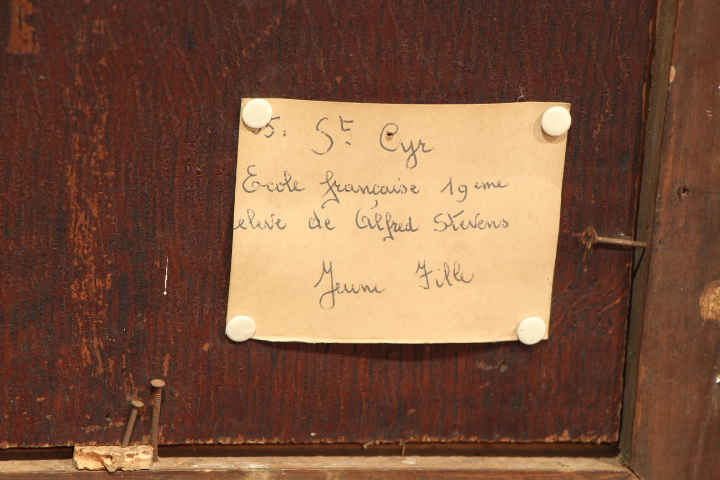 5: St Cyr
Ecole française 19eme
eleve de Alfred Stevens
Jeune Fille